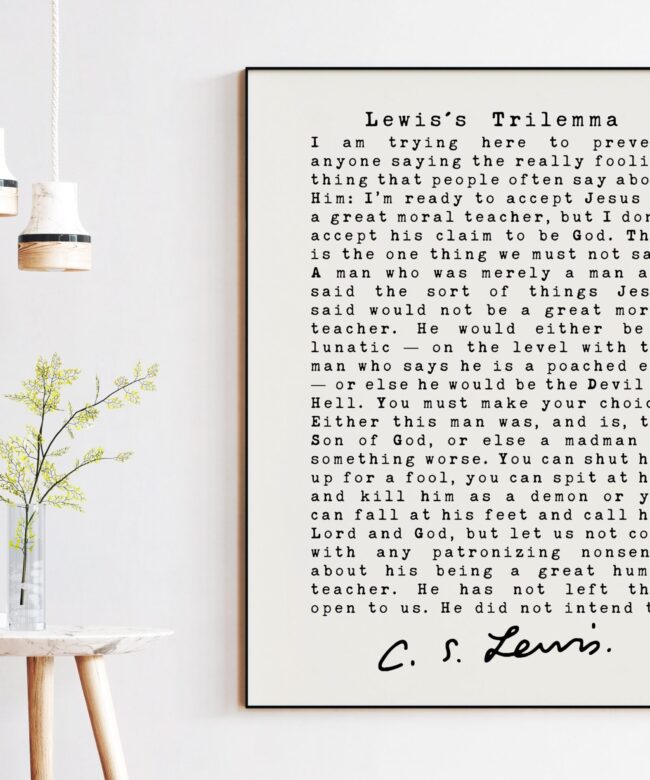 Lewis's Trilemma
I am trying here to preve
anyone saying the really fooli
thing that people often say abo
Him: I'm ready to accept Jesus
a great moral teacher, but I don
accept his claim to be God. Th
is the one thing we must not sa
A man who was merely a man a
said the sort of things Jes
said would not be a great mor
teacher. He would either be
lunatic — on the level with t
man who says he is a poached e
— or else he would be the Devil
Hell. You must make your choic
Either this man was, and is, t
Son of God, or else a madman
something worse. You can shut h
up for a fool, you can spit at h
and kill him as a demon or y
can fall at his feet and call h
Lord and God, but let us not co
with any patronizing nonsen
about his being a great hum
teacher. He has not left th
open to us. He did not intend t
C. S. Lewis.